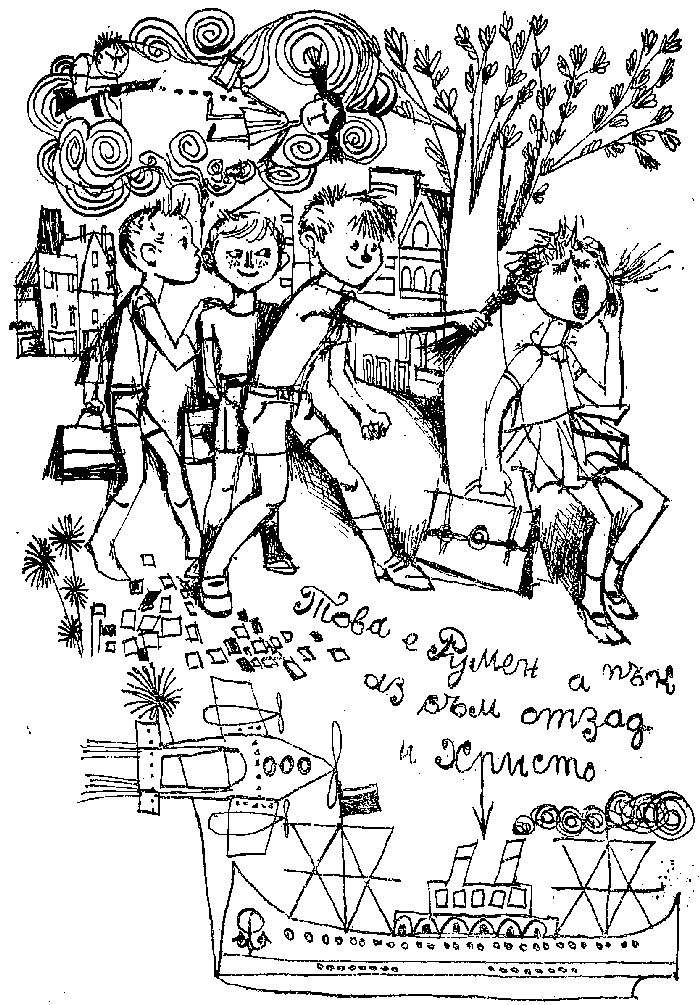 Това е Румен а пък
аз съм отзад
и Христо